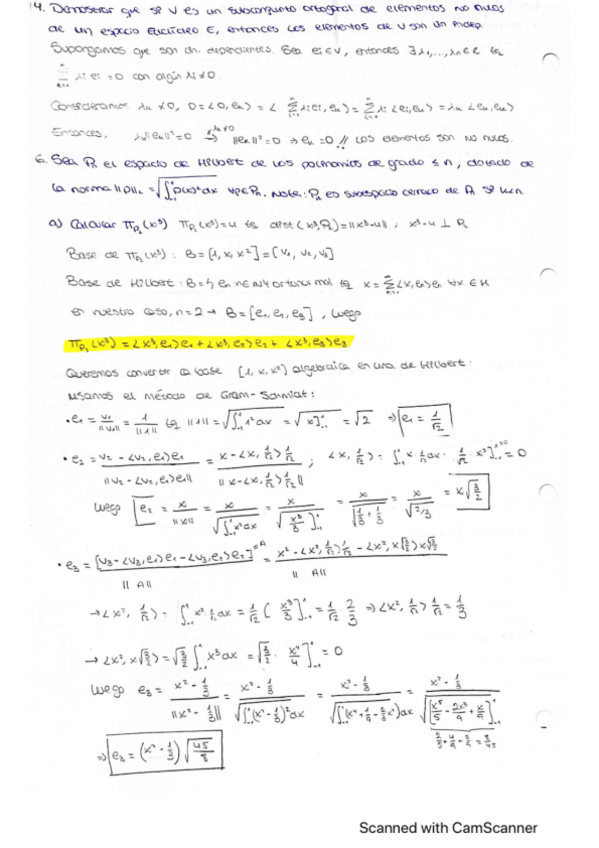 4. Demostrar que si V es un subconjunto ortogonal de elementos no nulos
de un espacio Euclídeo E, entonces los elementos de V son lin. indep.
Supongamos que son lin. dependientes. Sea ei∈V, entonces ∃λ1,...,λn∈ℝ tq
Σ λi ei = 0 con algún λi≠0.
Consideramos λn ≠0, 0 = <0, en> = < Σ λi ei, en> = Σ λi <ei, en> = λn <en, en>
Entonces, λn||en||²=0 ⇒ ||en||²=0 ⇒ en=0 // Los elementos son no nulos.
6. Sea Pn el espacio de Hilbert de los polinomios de grado ≤n, dotado de
la norma ||p||₂ = √∫₋₁¹ p(x)² dx ∀p∈Pn. Nota: Pn es subespacio cerrado de
a) Calcular πP₂(x³) πP₂(x³)=u tq dist(x³,P₂)=||x³-u||, x³-u ⊥ P₂
Base de πP₂(x³): B=[1, x, x²]=[v1, v2, v3]
Base de Hilbert: B={en n∈ℕ} ortonormal tq x = Σ<x,en>en ∀x∈H
en nuestro caso, n=2 → B=[e1, e2, e3], luego
πP₂(x³) = <x³,e1>e1 + <x³,e2>e2 + <x³,e3>e3
Queremos convertir la base [1, x, x²] algebraica en una de Hilbert:
usamos el método de Gram-Schmidt:
• e1 = v1/||v1|| = 1/||1|| tq ||1|| = √∫₋₁¹ 1² dx = √x]₋₁¹ = √2 ⇒ e1 = 1/√2
• e2 = (v2 - <v2,e1>e1)/||v2 - <v2,e1>e1|| = (x - <x,1/√2>1/√2)/||x - <x,1/√2>1/√2|| ; <x,1/√2> = ∫₋₁¹ x·1/√2 dx = 1/√2 x²]₋₁¹ = 0
luego e2 = x/||x|| = x/√∫₋₁¹ x² dx = x/√(x³/3]₋₁¹) = x/√(1/3+1/3) = x/√(2/3) = x√(3/2)
• e3 = [v3 - <v3,e1>e1 - <v3,e2>e2]=A/||A|| = (x² - <x²,1/√2>1/√2 - <x²,x√(3/2)>x√(3/2))/||A||
→ <x²,1/√2> = ∫₋₁¹ x²·1/√2 dx = 1/√2 (x³/3]₋₁¹ = 1/√2 · 2/3 ⇒ <x²,1/√2>1/√2 = 1/3
→ <x²,x√(3/2)> = √(3/2) ∫₋₁¹ x³ dx = √(3/2) · x⁴/4]₋₁¹ = 0
luego e3 = (x² - 1/3)/||x² - 1/3|| = (x² - 1/3)/√∫₋₁¹(x² - 1/3)² dx = (x² - 1/3)/√∫₋₁¹(x⁴ + 1/9 - 2/3 x²) dx = (x² - 1/3)/√[x⁵/5 - 2x³/9 + x/9]₋₁¹
⇒ e3 = (x² - 1/3)√(45/8)
Scanned with CamScanner